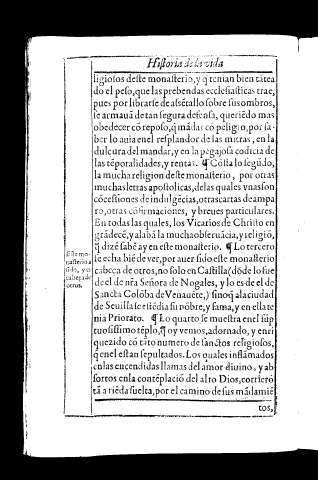 Historia de la vida
ligiosos deste monasterio, y q̃ tenian bien tãtea
do el peso, que las prebendas ecclesiasticas trae,
pues por librarse de assẽtallo sobre sus ombros,
se armauã de tan segura defensa, queriẽdo mas
obedecer cõ reposo, q̃ mãdar cõ peligro, por sa-
ber lo auia enel resplandor de las mitras, en la
dulcura del mandar, y en la pegajosa codicia de
las tẽporalidades, y rentas. ¶ Cõsta lo segũdo,
la mucha religion deste monasterio, por otras
muchas letras apostolicas, delas quales vnas son
cõcessiones de indulgẽcias, otras cartas de ampa
ro, otras cõfirmaciones, y breues particulares.
En todas las quales, los Vicarios de Christo en
grãdecẽ, y alabã la mucha obseruãcia, y religiõ,
q̃ dizẽ sabẽ ay en este monasterio. ¶ Lo tercero
se echa biẽ de ver, por auer sido este monasterio
cabeça de otros, no solo en Castilla (dõde lo fue
de el de nr̃a Señora de Nogales, y lo es de el de
Sancta Colõba de Venauẽte,) sinoq̃ ala ciudad
de Seuilla se estẽdia su nõbre, y fama, y en ella te
nia Priorato. ¶ Lo quarto se muestra enel sũp
tuosissimo tẽplo, q̃ oy vemos, adornado, y enri
quezido cõ tãto numero de sanctos religiosos,
q̃ enel estan sepultados. Los quales inflamados
enlas encendidas llamas del amor diuino, y ab
sortos enla contẽplaciõ del alto Dios, corriero
tã a riẽda suelta, por el camino de sus mãdamiẽ
tos,
Este mo-
nasterio a
sido, y es
cabeça de
otros.